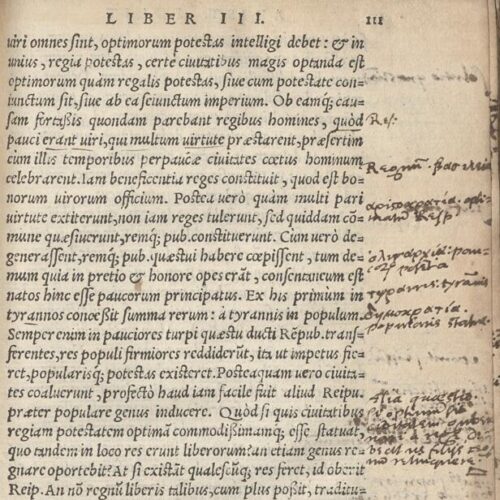 LIBER III. 111
uiri omnes sint, optimorum potestas intelligi debet: & in
unius, regia potestas, certe ciuitatibus magis optanda est
optimorum quàm regalis potestas, siue cum potestate con-
iunctum sit, siue ab ea seiunctum imperium. Ob eamq; cau-
sam fortaßis quondam parebant regibus homines, quòd
pauci erant uiri, qui multum uirtute præstarent, præsertim
cùm illis temporibus perpaucæ ciuitates cœtus hominum
celebrarent. Iam beneficentia reges constituit, quod est bo-
norum uirorum officium. Postea uerò quàm multi pari
uirtute extiterunt, non iam reges tulerunt, sed quiddam cō-
mune quæsiuerunt, remq; pub. constituerunt. Cum uerò de-
generassent, remq; pub. quæstui habere cœpissent, tum de-
mum quia in pretio & honore opes erāt, consentaneum est
natos hinc esse paucorum principatus. Ex his primùm in
tyrannos conceßit summa rerum: à tyrannis in populum.
Semper enim in pauciores turpi quæstu ducti Rēpub. trans-
ferentes, res populi firmiores reddiderūt, ita ut impetus fie-
ret, popularisq; potestas existeret. Postea quam uero ciuita-
tes coaluerunt, profectò haud iam facile fuit aliud Reipu.
præter populare genus inducere. Quòd si quis ciuitatibus
regiam potestatem optimā commodißimamq; esse statuat,
quo tandem in loco res erunt liberorum? an etiam genus re-
gnare oportebit? At si existāt qualescūq; res feret, id oberit
Reip. An nō regnū liberis talibus, cum plus poßit, traditu-
Res:
Regnū. βασιλεία
ἀριστοκρατία. opti-
matum Resp
ὀλιγαρχία: pau-
corū potestas
τυραννίς: tyrannis
δημοκρατία.
popularis status.